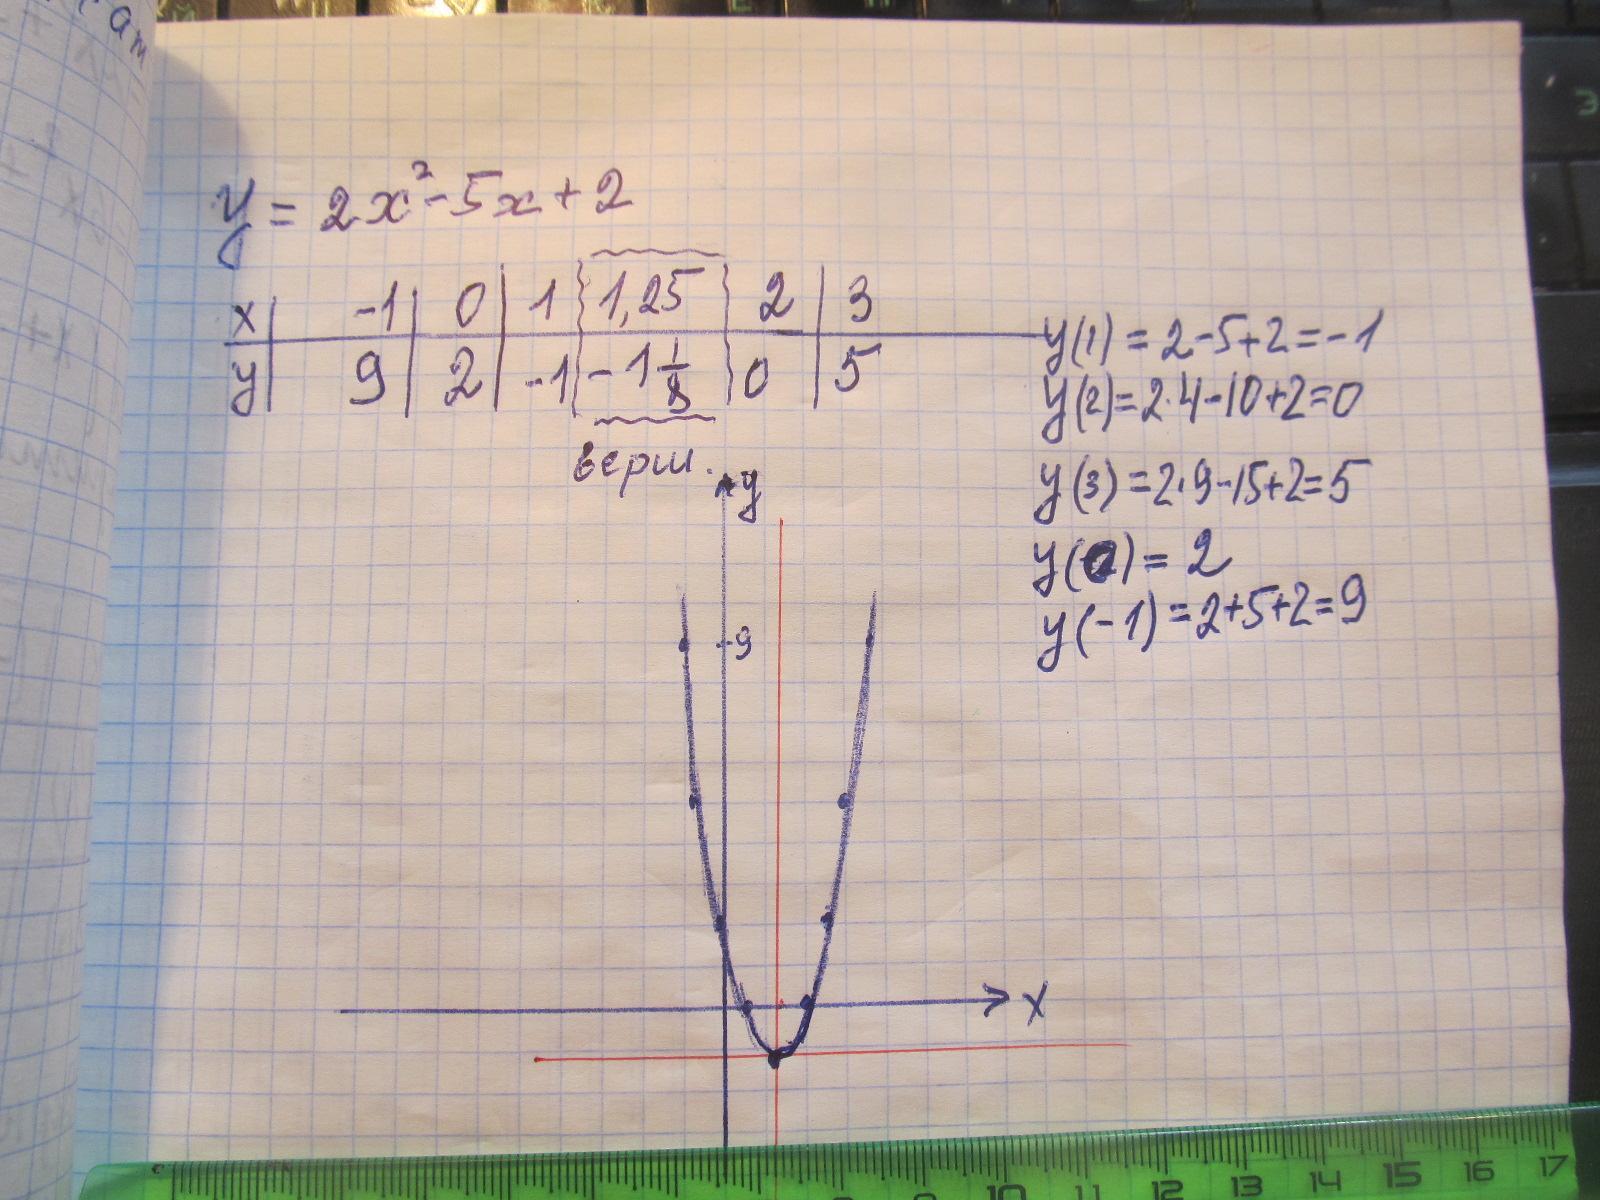 y = 2x² - 5x + 2
x | -1 | 0 | 1 | 1,25 | 2 | 3
y | 9 | 2 | -1 | -1 1/8 | 0 | 5
верш.
y(1) = 2-5+2=-1
y(2)=2·4-10+2=0
y(3)=2·9-15+2=5
y(0)=2
y(-1)=2+5+2=9
y
9
x
10 11 12 13 14 15 16 17